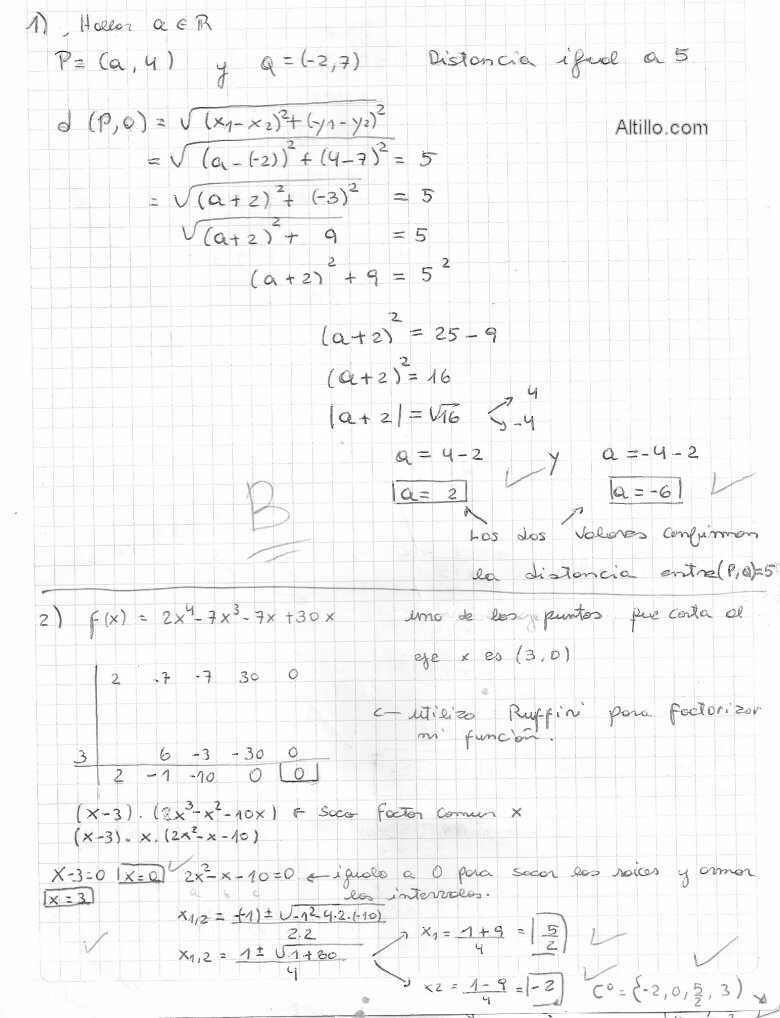 1) . Hallar a ∈ R
P = (a, 4) y Q = (-2, 7) Distancia igual a 5
d (P, Q) = √(x1 - x2)² + (y1 - y2)²
Altillo.com
= √(a - (-2))² + (4 - 7)² = 5
= √(a + 2)² + (-3)² = 5
√(a + 2)² + 9 = 5
(a + 2)² + 9 = 5²
(a + 2)² = 25 - 9
(a + 2)² = 16
|a + 2| = √16 4
-4
a = 4 - 2 y a = -4 - 2
a = 2 a = -6
B
Los dos valores confirman
la distancia entre (P, Q) = 5
2) f(x) = 2x⁴ - 7x³ - 7x + 30x uno de los puntos que corta al
eje x es (3, 0)
2 -7 -7 30 0
← utilizo Ruffini para factorizar
mi función.
3 6 -3 -30 0
2 -1 -10 0 0
(x - 3) . (2x³ - x² - 10x) ← Saco factor comun x
(x - 3) . x . (2x² - x - 10)
x - 3 = 0 x = 0 2x² - x - 10 = 0 ← igualo a 0 para sacar las raices y armar
x = 3 los intervalos.
x1,2 = -(-1) ± √-1² - 4.2.(-10) / 2.2
x1,2 = 1 ± √1 + 80 / 4
x1 = 1 + 9 / 4 = 5/2
x2 = 1 - 9 / 4 = -2 C⁰ = {-2, 0, 5/2, 3)